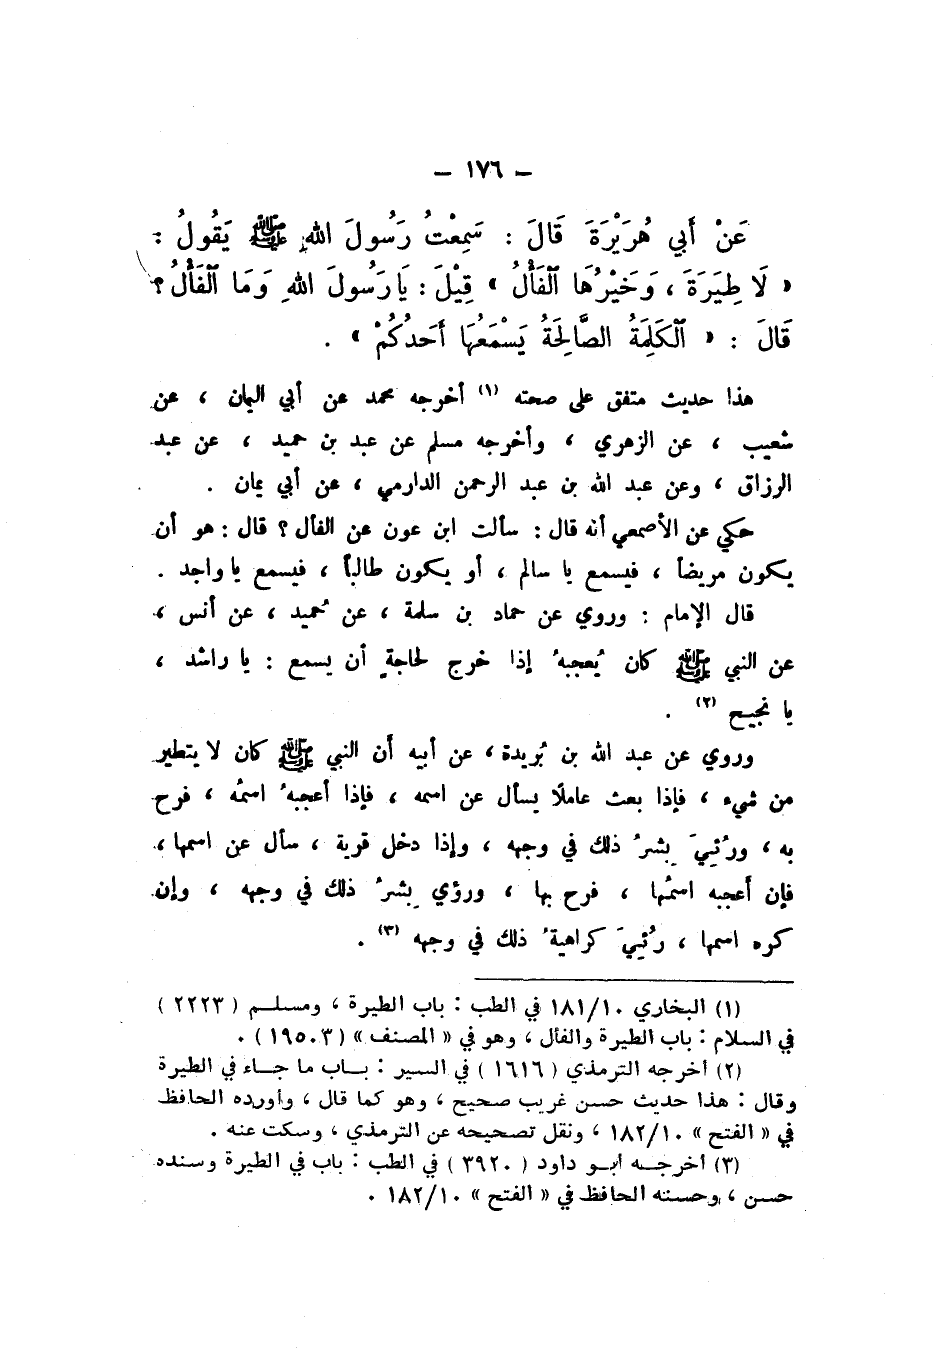 – ١٧٦ –
عَنْ أَبِي هُرَيْرَةَ قَالَ : سَمِعْتُ رَسُولَ اللهِ ﷺ يَقُولُ :
« لَا طِيَرَةَ ، وَخَيْرُهَا الْفَأْلُ » قِيْلَ : يَا رَسُولَ اللهِ وَمَا الْفَأْلُ ؟
قَالَ : « الْكَلِمَةُ الصَّالِحَةُ يَسْمَعُهَا أَحَدُكُمْ » .
هذا حديث متفق على صحته (١) أخرجه محمد عن أبي اليمان ، عن
شعيب ، عن الزهري ، وأخرجه مسلم عن عبد بن حميد ، عن عبد
الرزاق ، وعن عبد الله بن عبد الرحمن الدارمي ، عن أبي يمان .
حكي عن الأصمعي أنه قال : سألت ابن عون عن الفأل ؟ قال : هو أن
يكون مريضاً ، فيسمع يا سالم ، أو يكون طالباً ، فيسمع يا واجد .
قال الإمام : وروي عن حماد بن سلمة ، عن حُميد ، عن أنس ،
عن النبي ﷺ كان يُعجبهُ إذا خرج لحاجةٍ أن يسمع : يا راشد ،
يا نجيح (٢) .
وروي عن عبد الله بن بُريدة ، عن أبيه أن النبي ﷺ كان لا يتطير
من شيء ، فإذا بعث عاملًا يسأل عن اسمه ، فإذا أعجبهُ اسمُه ، فرح
به ، ورُئيَ بِشرُ ذلك في وجهه ، وإذا دخل قرية ، سأل عن اسمها ،
فإن أعجبه اسمُها ، فرح بها ، ورؤي بِشرُ ذلك في وجهه ، وإن
كره اسمها ، رُئيَ كراهيةُ ذلك في وجهه (٣) .
(١) البخاري ١٨١/١٠ في الطب : باب الطيرة ، ومسلم ( ٢٢٢٣ )
في السلام : باب الطيرة والفأل ، وهو في « المصنف » ( ١٩٥٠٣ ) .
(٢) أخرجه الترمذي ( ١٦١٦ ) في السير : باب ما جاء في الطيرة
وقال : هذا حديث حسن غريب صحيح ، وهو كما قال ، وأورده الحافظ
في « الفتح » ١٨٢/١٠ ، ونقل تصحيحه عن الترمذي ، وسكت عنه .
(٣) أخرجه أبو داود ( ٣٩٢٠ ) في الطب : باب في الطيرة وسنده
حسن ، وحسنه الحافظ في « الفتح » ١٨٢/١٠ .